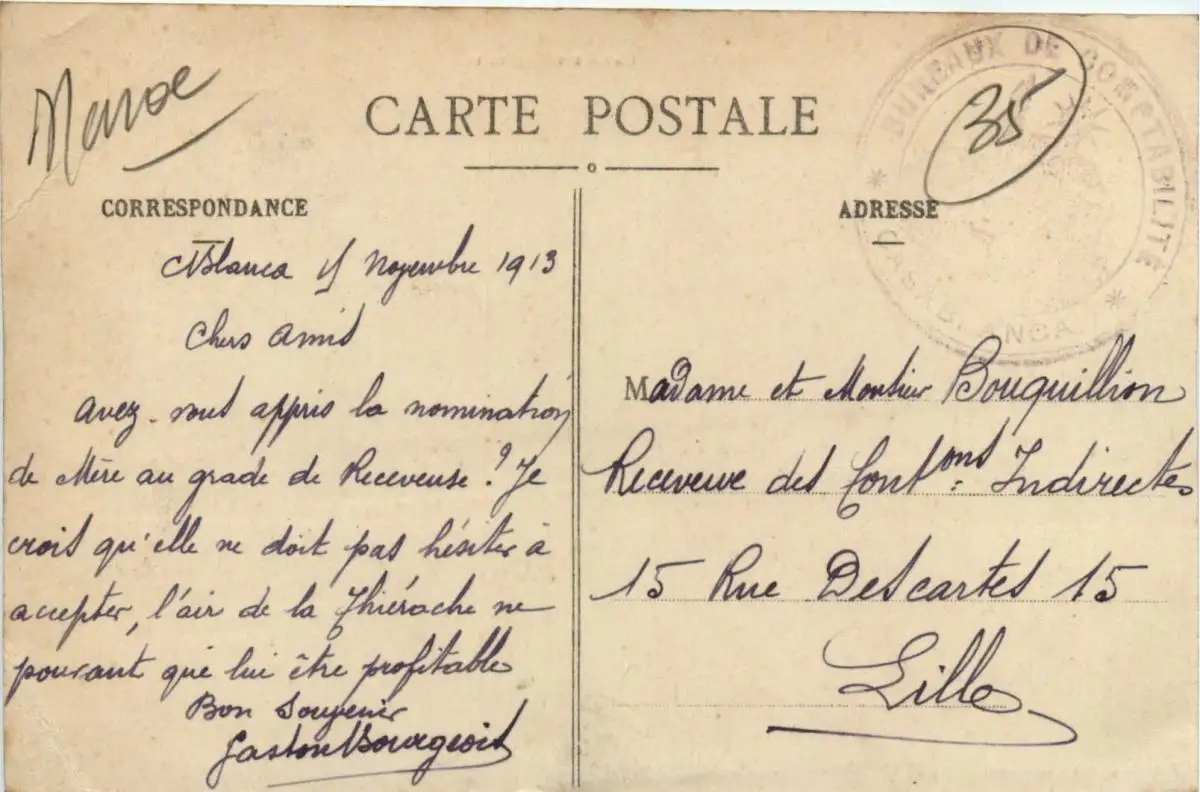 Maroc
CARTE POSTALE
35
BUREAUX DE COMPTABILITÉ
* CASABLANCA *
CORRESPONDANCE
ADRESSE
Novembre 1913
Chers Amis
Avez-vous appris la nomination
de Mère au grade de Receveuse? Je
crois qu'elle ne doit pas hésiter à
accepter, l'air de la Thiérache ne
pouvant que lui être profitable
Bon Souvenir
Gaston Bourgeois
Madame et Monsieur Bouquillion
Receveur des Cont.ons Indirectes
15 Rue Descartes 15
Lille